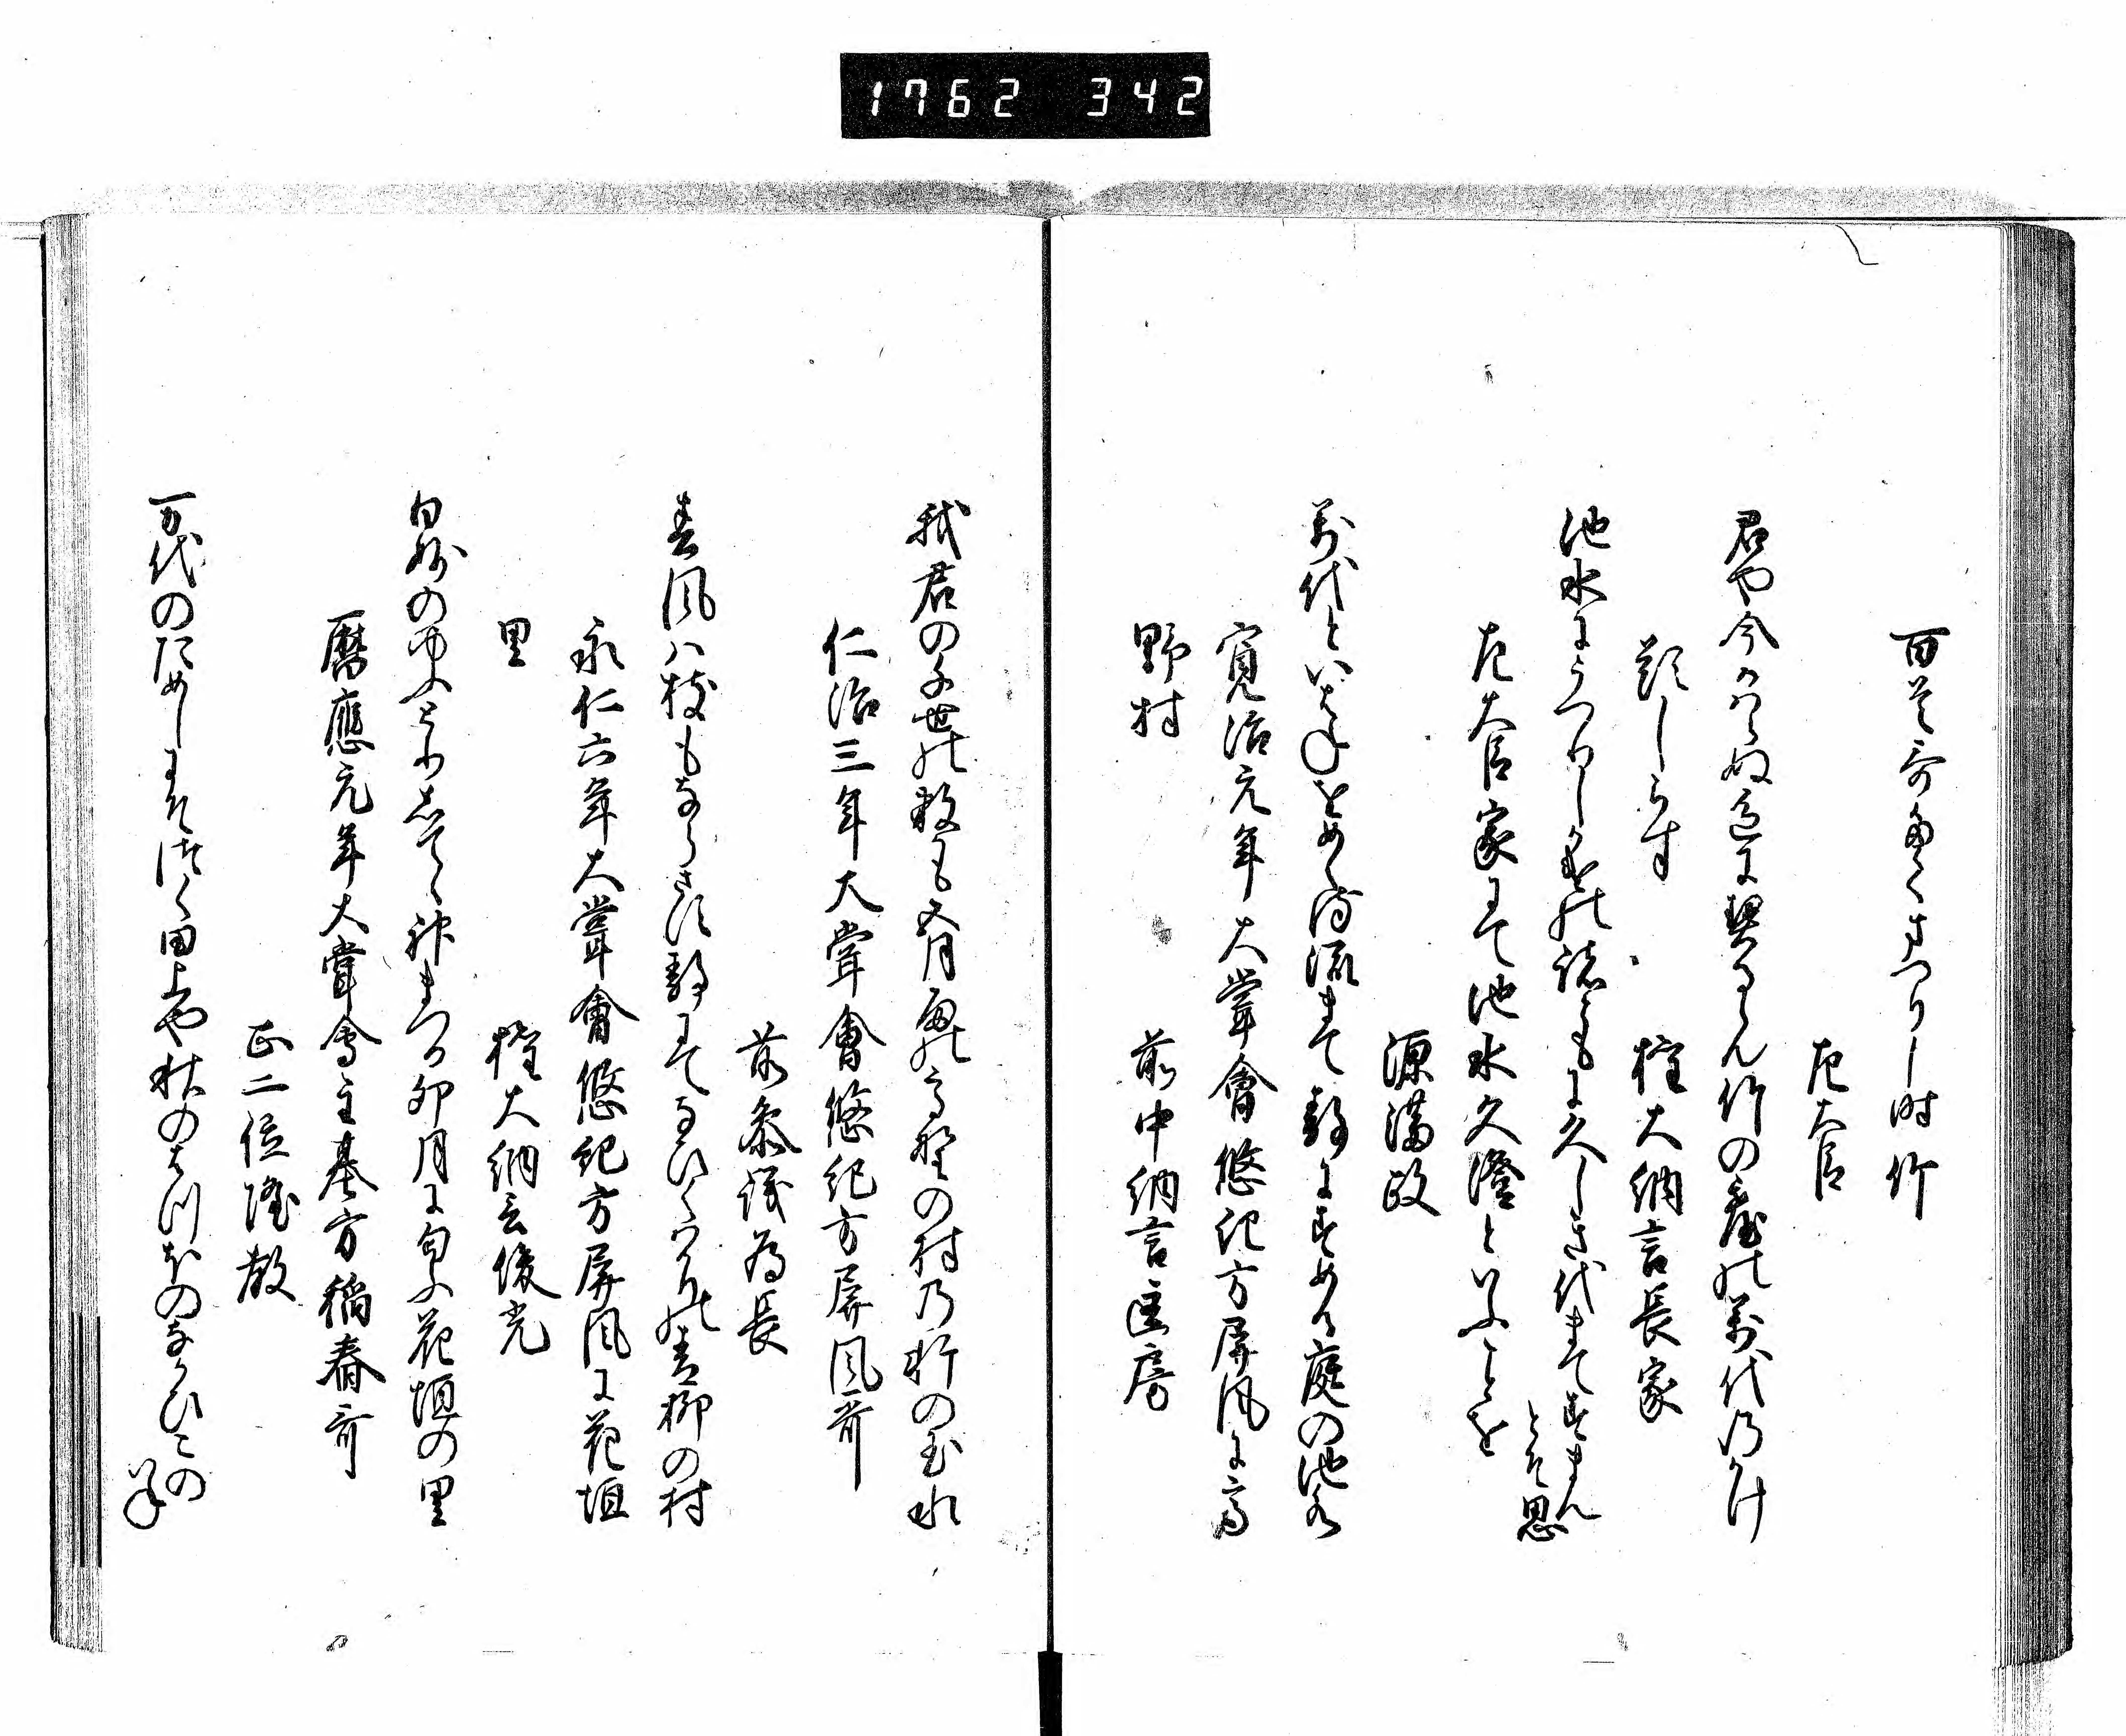 1762 342
百首哥たてまつりし時竹
左大臣
君や今かはらぬ色に契るらん竹の台の万代のかけ
題しらす
権大納言長家
池水にうつりしかけの流にも久しき代まてすまん
とそ思
左大臣家にて池水久澄といふことを
源満政
万代といはねをめくり流きて静にすめる庭の池水
寛治元年大嘗會悠紀方屏風に高
野村
前中納言匡房
我君の千世の数も五月雨の高野の村乃軒の玉水
仁治三年大嘗會悠紀方屏風哥
前参議為長
春風ハ枝もならさす静にてなひくはかりの青柳の村
永仁六年大嘗會悠紀方屏風に花垣
里
権大納言俊光
白妙のゆふとりしてゝ神まつる卯月に匂ふ花垣の里
暦應元年大嘗會主基方稲春哥
正二位隆教
万代のためしにそつく田上や秋のはつほのなかひこの
いね